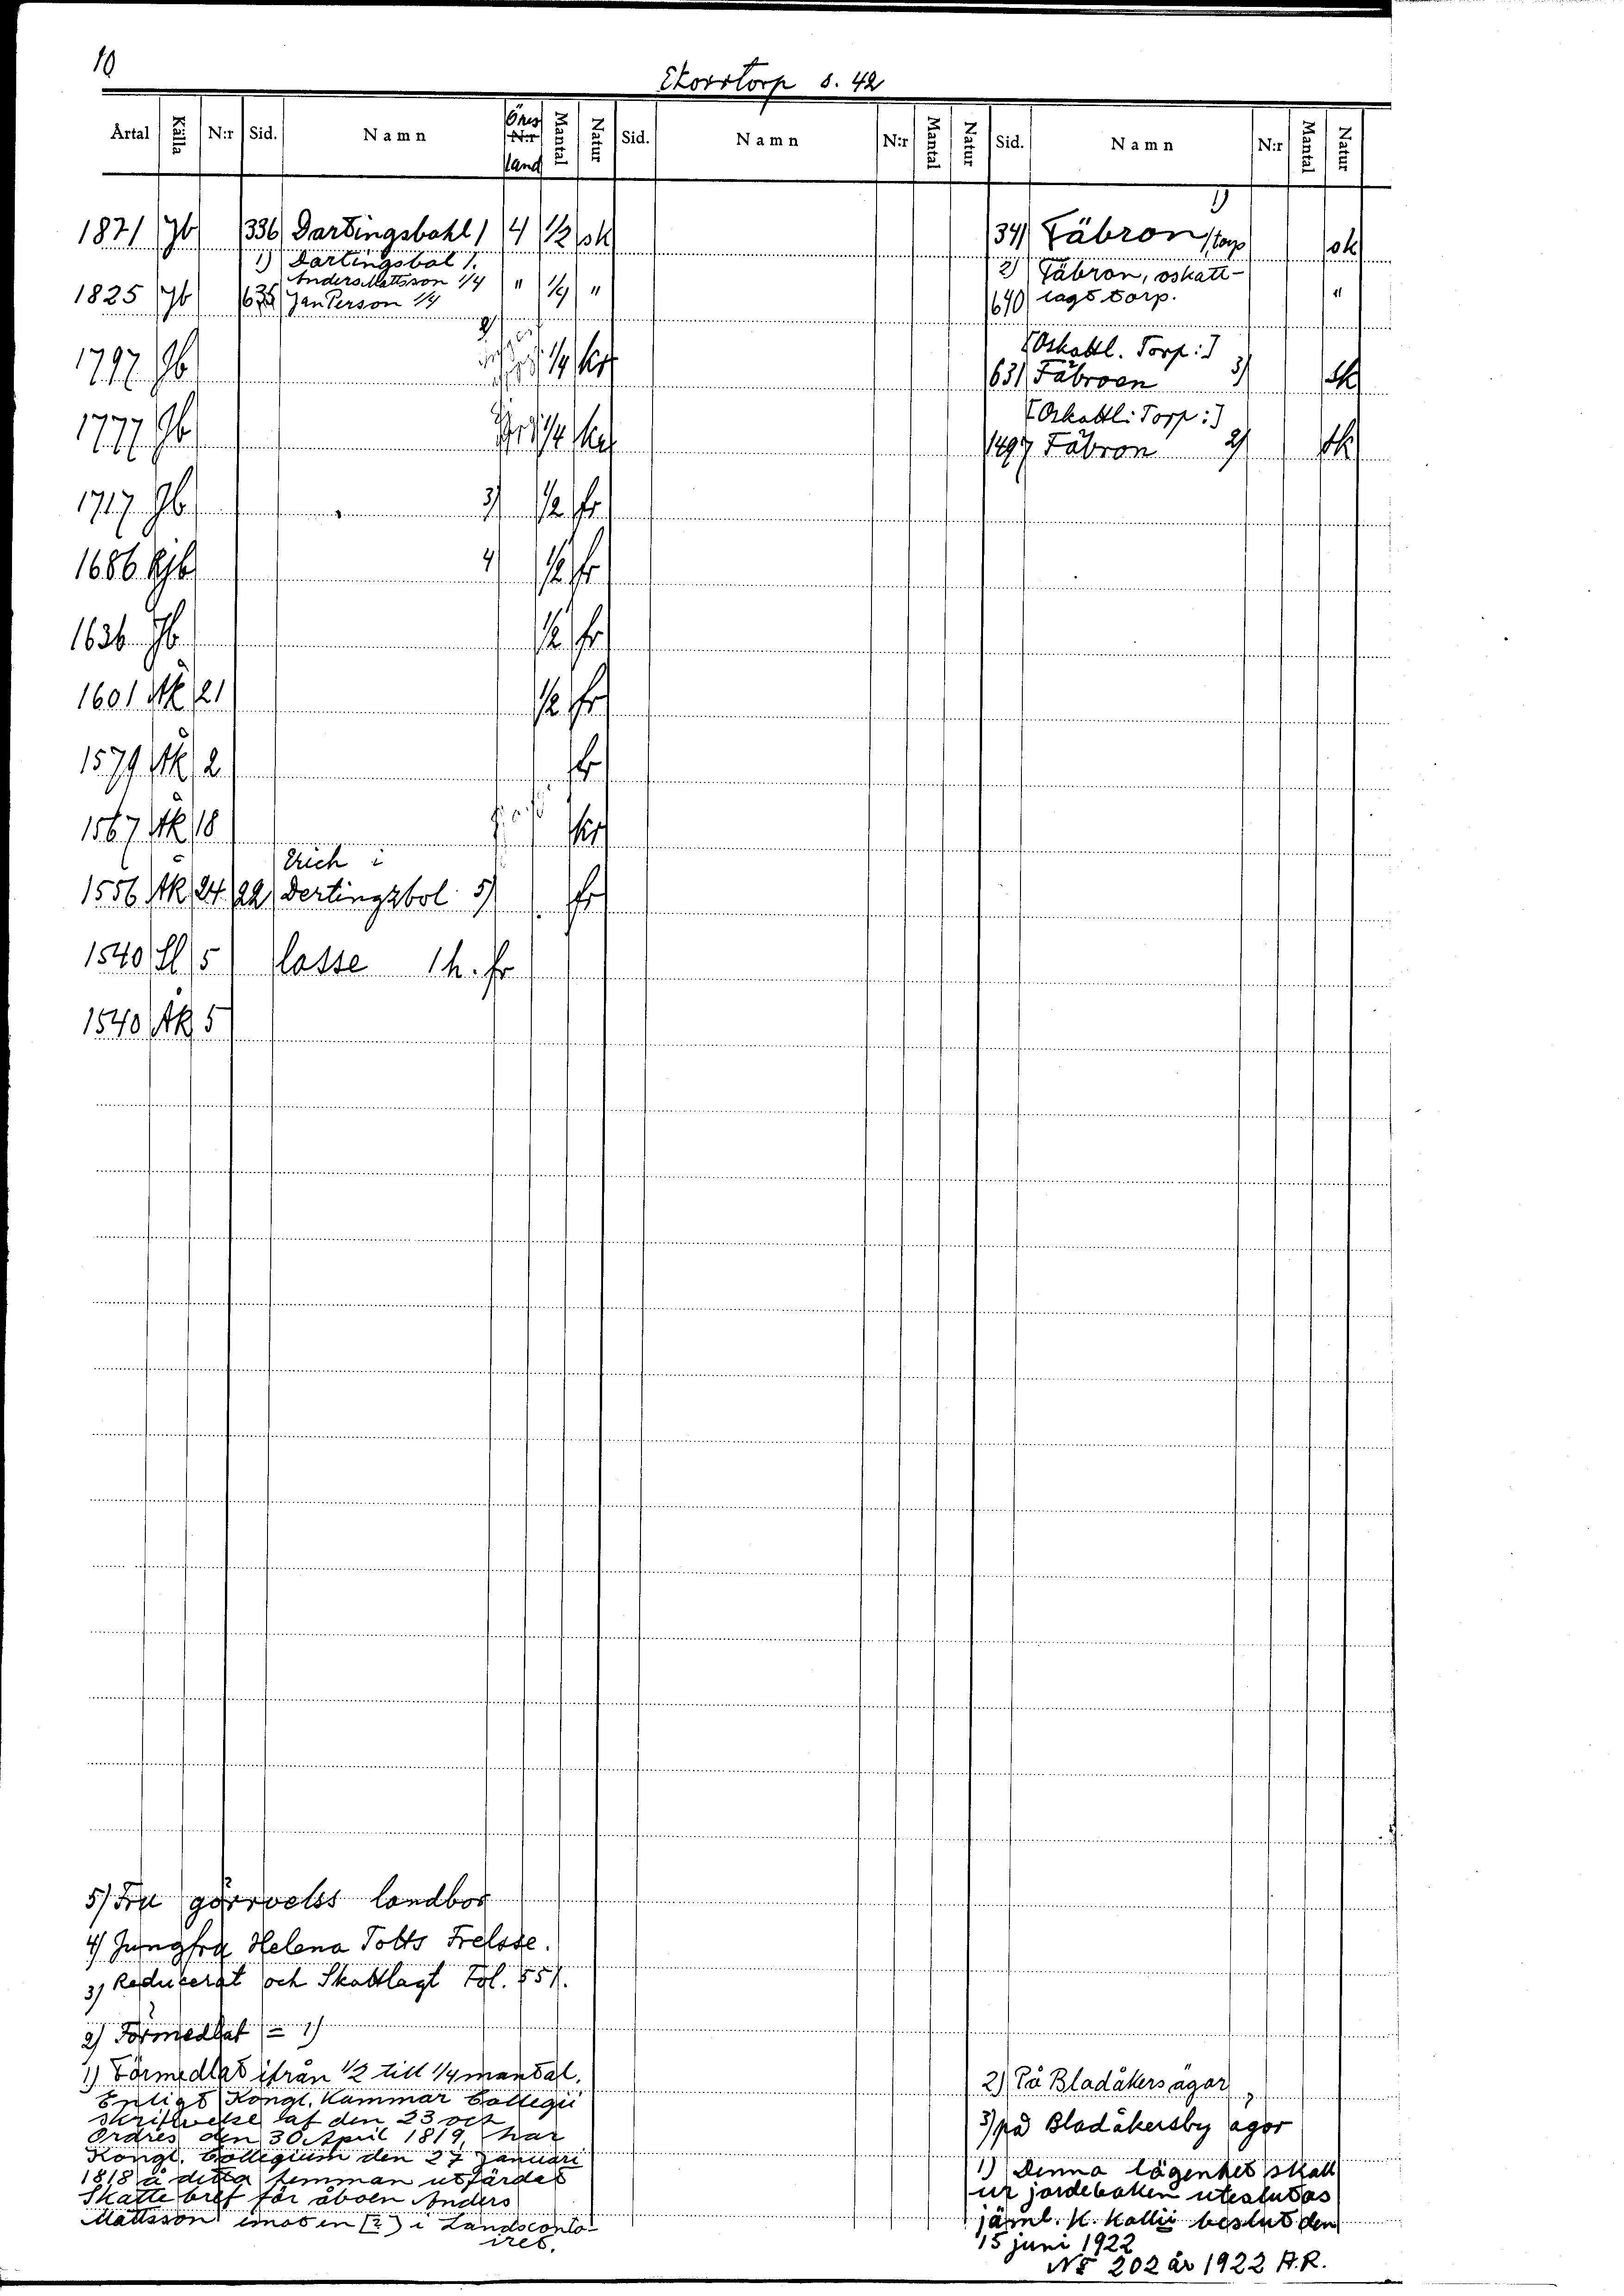 10
Ekorrtorp s. 42
Årtal Källa N:r Sid. Namn Öres N:r land Mantal Natur Sid. Namn N:r Mantal Natur Sid. Namn N:r Mantal Natur
1)
1871 Jb 336 Dartingsbohl 1 4 1/2 sk 341 Fäbron, torp sk
1) Dartingsbol 1. 2) Fäbron, oskatt-
Anders Mattsson 1/4
1825 Jb 635 Jan Person 1/4 " 1/4 " 640 lagt torp. "
[Oskattl. Torp:]
1797 Jb 2) 1/4 kr 631 Fäbroen 3) sk
[Oskattl: Torp:]
1777 Jb 1/4 1497 Fäbron 2) sk
1717 Jb 3) 1/2 fr
1686 Rjb 4) 1/2 fr
1636 Jb 1/2 fr
1601 Åk 21 1/2 fr
1579 Åk 2 fr
1567 Åk 18
Erich i
1556 Åk 24 22 Dertingzbol 5) fr
1540 Sl 5 lasse 1 h. fr
1540 Åk 5
5) Fru görvelss landbor
4) Jungfru Helena Totts Frelsse.
3) Reducerat och Skattlagt Fol. 551.
2) Förmedlat = 1)
1) Förmedlat ifrån 1/2 till 1/4 mantal.
Enligt Kongl. Kammar Collegii
skrifwelse af den 23 och
Ordres den 30 April 1819, har
Kongl. Collegium den 27 Januari
1818 å detta hemman utfärdat
Skatte bref för åboen Anders
Mattsson emot en [?] i Landsconto-
iret.
2) På Bladåkers ägor
3) på Bladåkersby ägor
1) Denna lägenhet skall
ur jordeboken uteslutas
jäml. K. Kollii beslut den
15 juni 1922
No 202 år 1922 A.R.